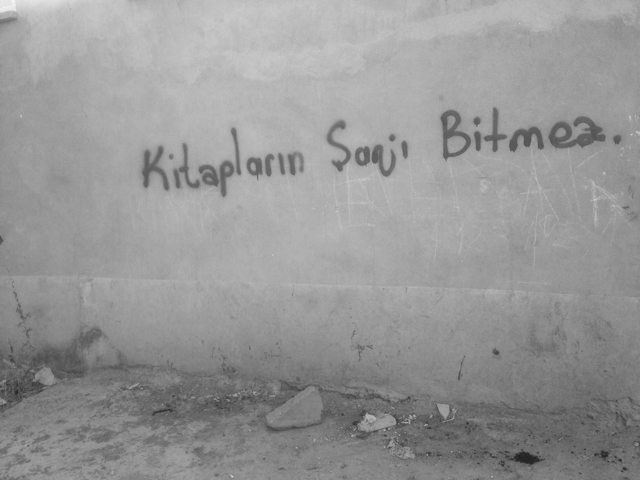 Kitapların Şarjı Bitmez.